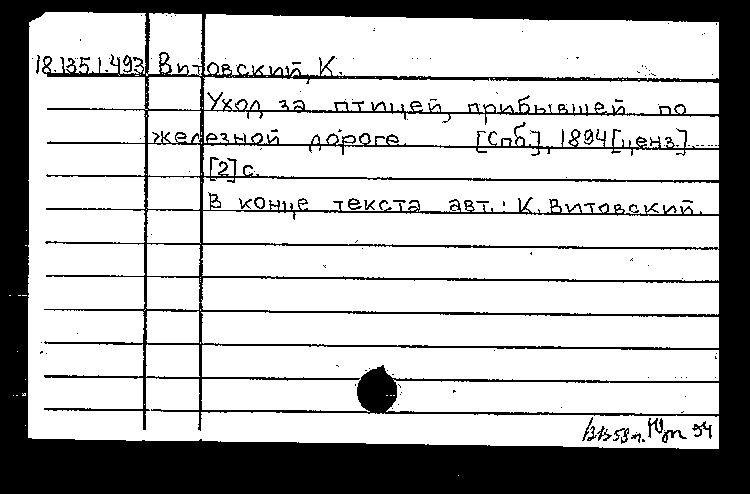 18.135.1.493 Витовский, К.
Уход за птицей, прибывшей по
железной дороге. [Спб.], 1894 [ценз.]
[2] с.
В конце текста авт.: К. Витовский.
94